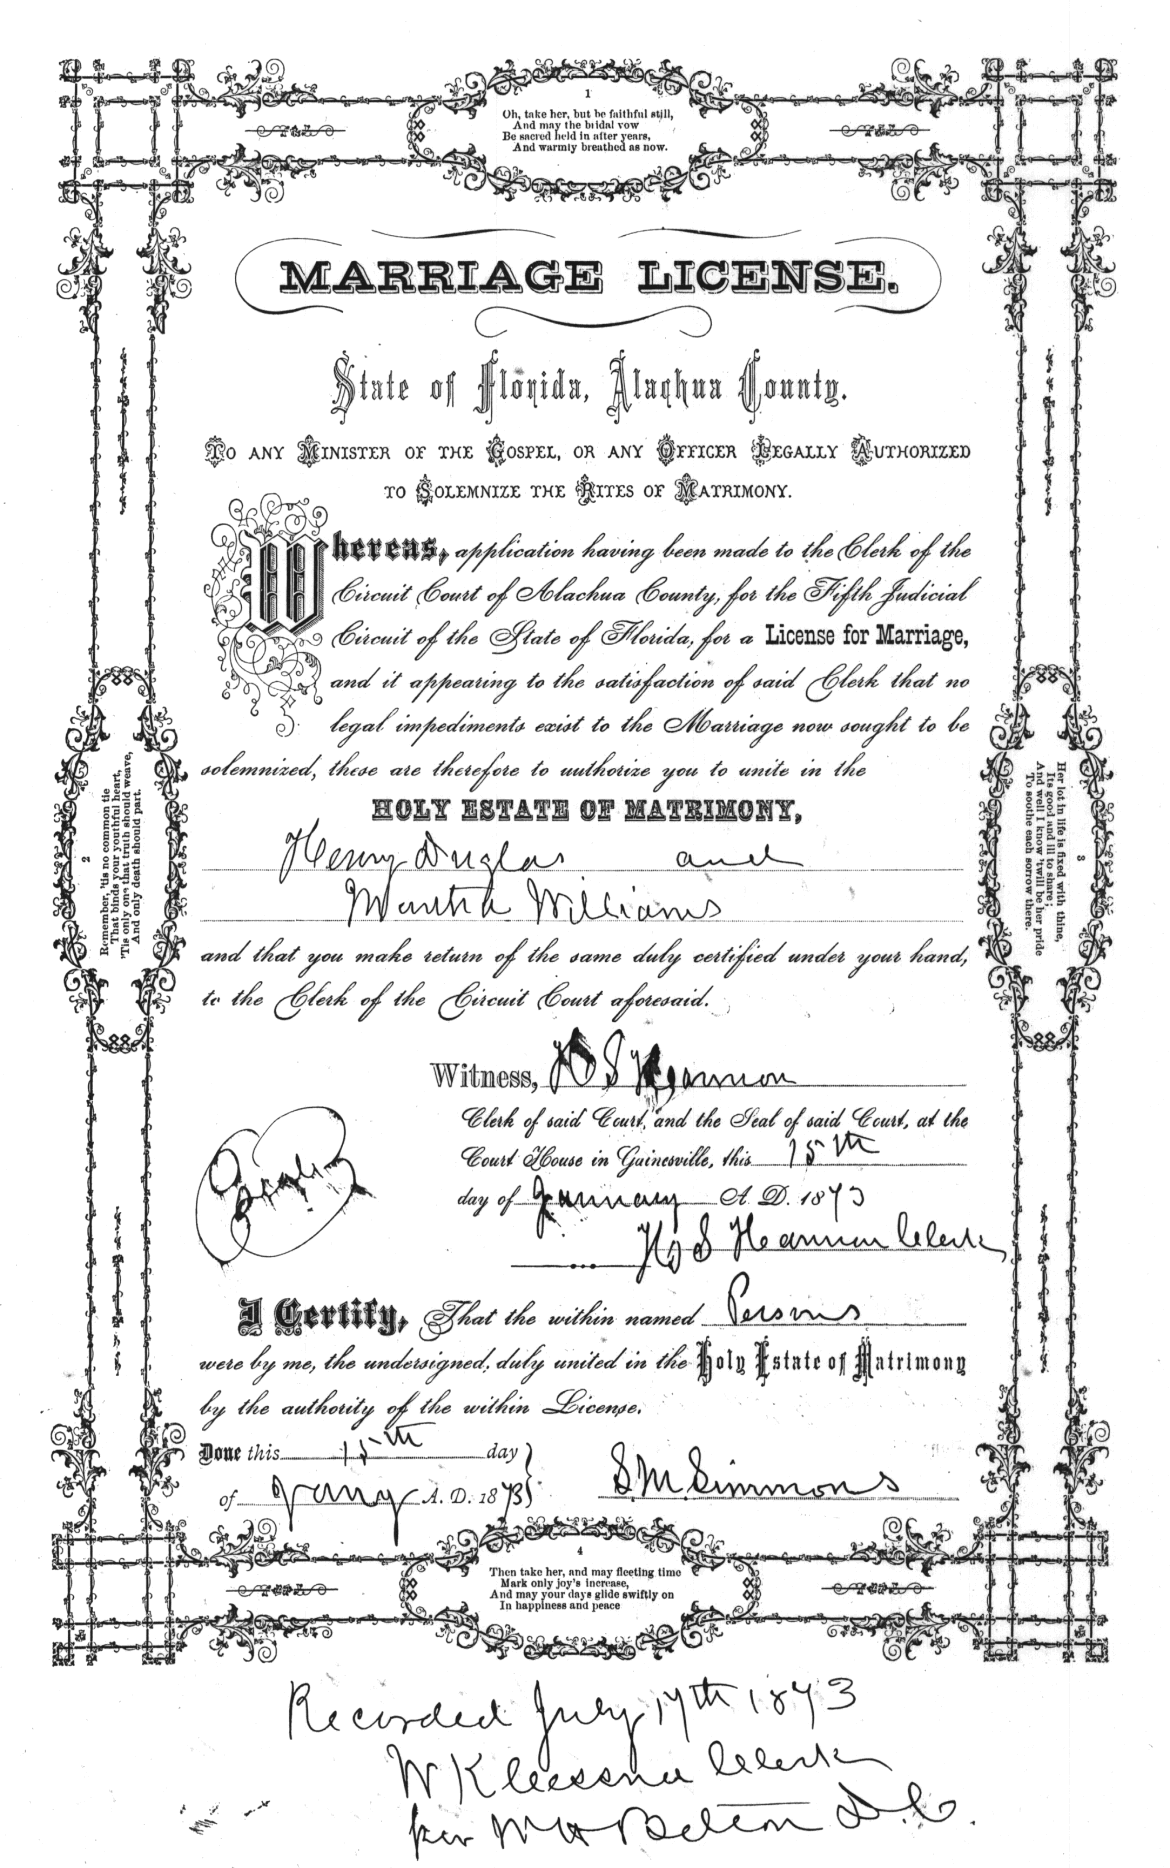 1
Oh, take her, but be faithful still,
And may the bridal vow
Be sacred held in after years,
And warmly breathed as now.
MARRIAGE LICENSE.
State of Florida, Alachua County.
TO ANY MINISTER OF THE GOSPEL, OR ANY OFFICER LEGALLY AUTHORIZED
TO SOLEMNIZE THE RITES OF MATRIMONY.
Whereas, application having been made to the Clerk of the
Circuit Court of Alachua County, for the Fifth Judicial
Circuit of the State of Florida, for a License for Marriage,
and it appearing to the satisfaction of said Clerk that no
legal impediments exist to the Marriage now sought to be
solemnized, these are therefore to authorize you to unite in the
HOLY ESTATE OF MATRIMONY,
Henry Duglas and
Martha Williams
and that you make return of the same duly certified under your hand,
to the Clerk of the Circuit Court aforesaid.
2
Remember, 'tis no common tie
That binds your youthful heart,
'Tis only one that truth should weave,
And only death should part.
3
Her lot in life is fixed with thine,
Its good and ill to share;
And well I know 'twill be her pride
To soothe each sorrow there.
Witness, H S Harmon
Clerk of said Court, and the Seal of said Court, at the
Court House in Gainesville, this 15th
day of January A. D. 1873
H S Harmon Clerk
I Certify, That the within named Persons
were by me, the undersigned, duly united in the Holy Estate of Matrimony
by the authority of the within License.
Done this 15th day
of Jany A. D. 1873
S. M. Simmons
4
Then take her, and may fleeting time
Mark only joy's increase,
And may your days glide swiftly on
In happiness and peace
Recorded July 17th 1873
W K Cessna Clerk
per W H Belton D. C.